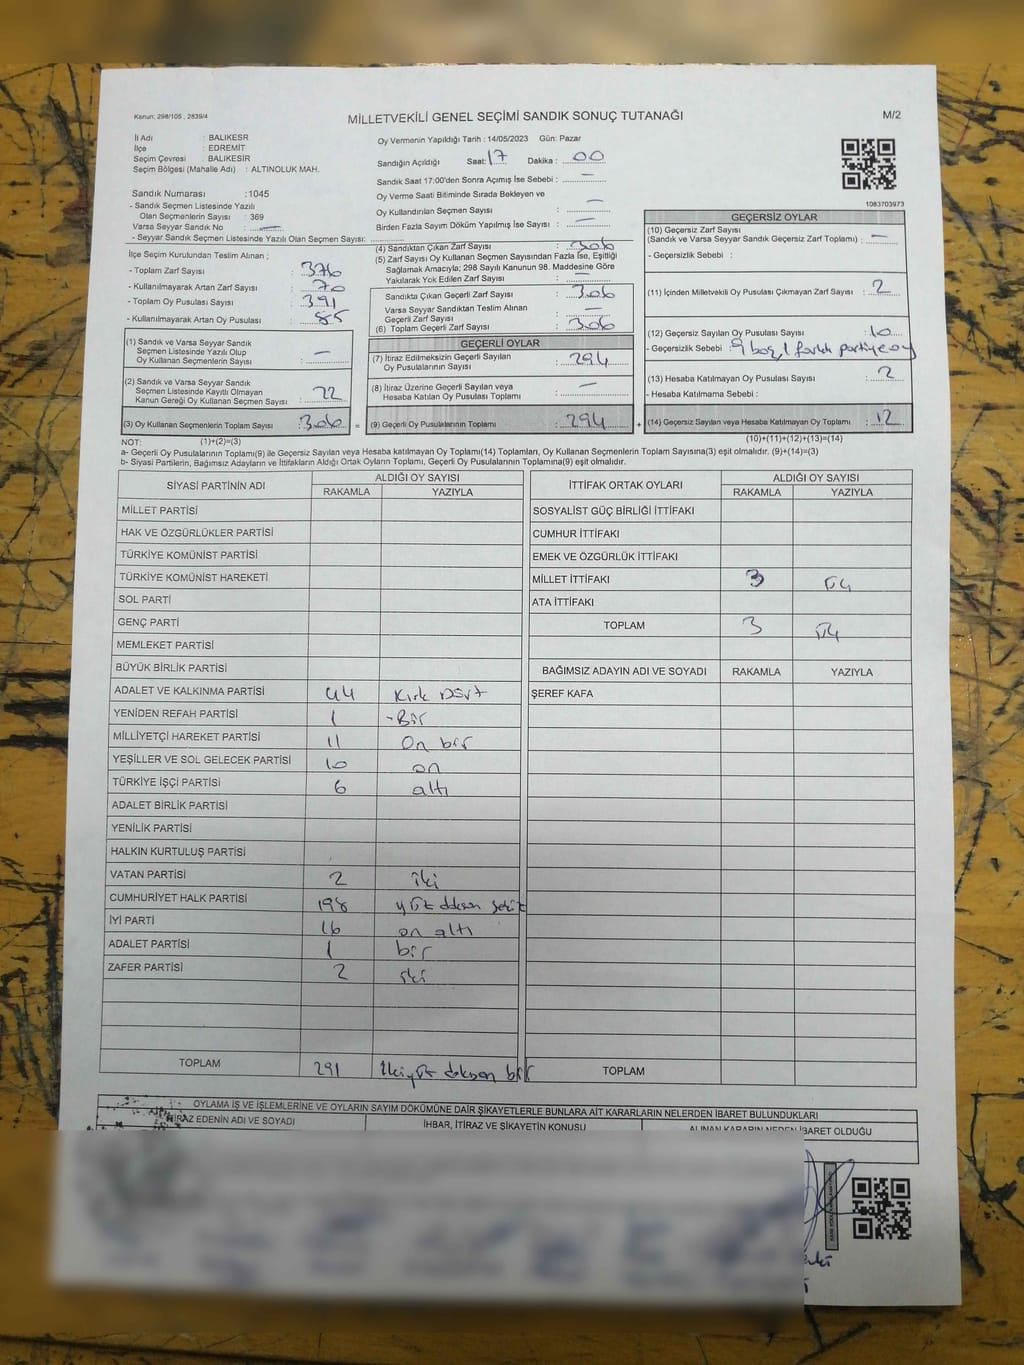 Kanun; 298/105 , 2839/4
MİLLETVEKİLİ GENEL SEÇİMİ SANDIK SONUÇ TUTANAĞI
M/2
İl Adı : BALIKESR
İlçe : EDREMİT
Seçim Çevresi : BALIKESİR
Seçim Bölgesi (Mahalle Adı) : ALTINOLUK MAH.
Sandık Numarası :1045
- Sandık Seçmen Listesinde Yazılı
Olan Seçmenlerin Sayısı : 369
Varsa Seyyar Sandık No : —
- Seyyar Sandık Seçmen Listesinde Yazılı Olan Seçmen Sayısı:
Oy Vermenin Yapıldığı Tarih : 14/05/2023 Gün: Pazar
Sandığın Açıldığı Saat: 17 Dakika : 00
Sandık Saat 17:00'den Sonra Açımış İse Sebebi : —
Oy Verme Saati Bitiminde Sırada Bekleyen ve
Oy Kullandırılan Seçmen Sayısı : —
Birden Fazla Sayım Döküm Yapılmış İse Sayısı : —
1083703973
İlçe Seçim Kurulundan Teslim Alınan ;
- Toplam Zarf Sayısı : 376
- Kullanılmayarak Artan Zarf Sayısı : 70
- Toplam Oy Pusulası Sayısı : 391
- Kullanılmayarak Artan Oy Pusulası : 85
(1) Sandık ve Varsa Seyyar Sandık
Seçmen Listesinde Yazılı Olup
Oy Kullanan Seçmenlerin Sayısı : —
(2) Sandık ve Varsa Seyyar Sandık
Seçmen Listesinde Kayıtlı Olmayan
Kanun Gereği Oy Kullanan Seçmen Sayısı : 22
(3) Oy Kullanan Seçmenlerin Toplam Sayısı : 306
(4) Sandıktan Çıkan Zarf Sayısı : 306
(5) Zarf Sayısı Oy Kullanan Seçmen Sayısından Fazla İse, Eşitliği
Sağlamak Amacıyla; 298 Sayılı Kanunun 98. Maddesine Göre
Yakılarak Yok Edilen Zarf Sayısı : —
Sandıkta Çıkan Geçerli Zarf Sayısı : 306
Varsa Seyyar Sandıktan Teslim Alınan
Geçerli Zarf Sayısı :
(6) Toplam Geçerli Zarf Sayısı : 306
GEÇERLİ OYLAR
(7) İtiraz Edilmeksizin Geçerli Sayılan
Oy Pusulalarının Sayısı : 294
(8) İtiraz Üzerine Geçerli Sayılan veya
Hesaba Katılan Oy Pusulası Toplamı : —
= (9) Geçerli Oy Pusulalarının Toplamı : 294 +
GEÇERSİZ OYLAR
(10) Geçersiz Zarf Sayısı
(Sandık ve Varsa Seyyar Sandık Geçersiz Zarf Toplamı) : —
- Geçersizlik Sebebi :
(11) İçinden Milletvekili Oy Pusulası Çıkmayan Zarf Sayısı : 2
(12) Geçersiz Sayılan Oy Pusulası Sayısı : 10
- Geçersizlik Sebebi : 9 boş, 1 farklı partiye oy
(13) Hesaba Katılmayan Oy Pusulası Sayısı : 2
- Hesaba Katılmama Sebebi :
(14) Geçersiz Sayılan veya Hesaba Katılmayan Oy Toplamı : 12
NOT: (1)+(2)=(3)
(10)+(11)+(12)+(13)=(14)
a- Geçerli Oy Pusulasının Toplamı(9) ile Geçersiz Sayılan veya Hesaba katılmayan Oy Toplamı(14) Toplamları, Oy Kullanan Seçmenlerin Toplam Sayısına(3) eşit olmalıdır. (9)+(14)=(3)
b- Siyasi Partilerin, Bağımsız Adayların ve İttifakların Aldığı Ortak Oyların Toplamı, Geçerli Oy Pusulalarının Toplamına(9) eşit olmalıdır.
SİYASİ PARTİNİN ADI ALDIĞI OY SAYISI
RAKAMLA YAZIYLA
MİLLET PARTİSİ
HAK VE ÖZGÜRLÜKLER PARTİSİ
TÜRKİYE KOMÜNİST PARTİSİ
TÜRKİYE KOMÜNİST HAREKETİ
SOL PARTİ
GENÇ PARTİ
MEMLEKET PARTİSİ
BÜYÜK BİRLİK PARTİSİ
ADALET VE KALKINMA PARTİSİ 44 Kırk Dört
YENİDEN REFAH PARTİSİ 1 - Bir
MİLLİYETÇİ HAREKET PARTİSİ 11 On bir
YEŞİLLER VE SOL GELECEK PARTİSİ 10 on
TÜRKİYE İŞÇİ PARTİSİ 6 altı
ADALET BİRLİK PARTİSİ
YENİLİK PARTİSİ
HALKIN KURTULUŞ PARTİSİ
VATAN PARTİSİ 2 iki
CUMHURİYET HALK PARTİSİ 198 yüz doksan sekiz
İYİ PARTİ 16 on altı
ADALET PARTİSİ 1 bir
ZAFER PARTİSİ 2 iki
TOPLAM 291 ikiyüz doksan bir
İTTİFAK ORTAK OYLARI ALDIĞI OY SAYISI
RAKAMLA YAZIYLA
SOSYALİST GÜÇ BİRLİĞİ İTTİFAKI
CUMHUR İTTİFAKI
EMEK VE ÖZGÜRLÜK İTTİFAKI
MİLLET İTTİFAKI 3 üç
ATA İTTİFAKI
TOPLAM 3 üç
BAĞIMSIZ ADAYIN ADI VE SOYADI RAKAMLA YAZIYLA
ŞEREF KAFA
TOPLAM
OYLAMA İŞ VE İŞLEMLERİNE VE OYLARIN SAYIM DÖKÜMÜNE DAİR ŞİKAYETLERLE BUNLARA AİT KARARLARIN NELERDEN İBARET BULUNDUKLARI
İTİRAZ EDENİN ADI VE SOYADI İHBAR, İTİRAZ VE ŞİKAYETİN KONUSU ALINAN KARARIN NEDEN İBARET OLDUĞU